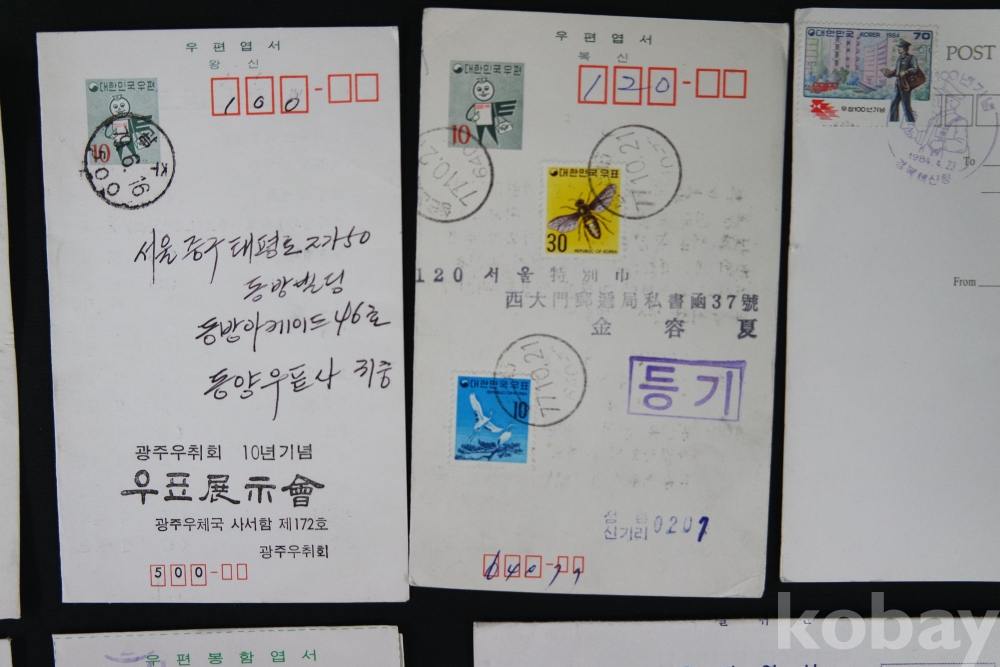 우편엽서
왕신
대한민국우편
100
10
서울 중구 태평로 2가 50
동방빌딩
동방아케이드 46호
동양우표사 귀중
광주우취회 10년기념
우표展示會
광주우체국 사서함 제172호
광주우취회
500
우편엽서
복신
대한민국우편
120
10
77.10.21
77.10.21
대한민국우표
30
REPUBLIC OF KOREA
120 서울特別市
西大門郵遞局私書函37號
金容夏
77.10.21
대한민국우표
REPUBLIC OF KOREA
10
등기
신기리 0207
대한민국 KOREA 1984 70
우정100년기념
POST
1984.4.23
경북체신청
To
From
우편봉함엽서
kobay